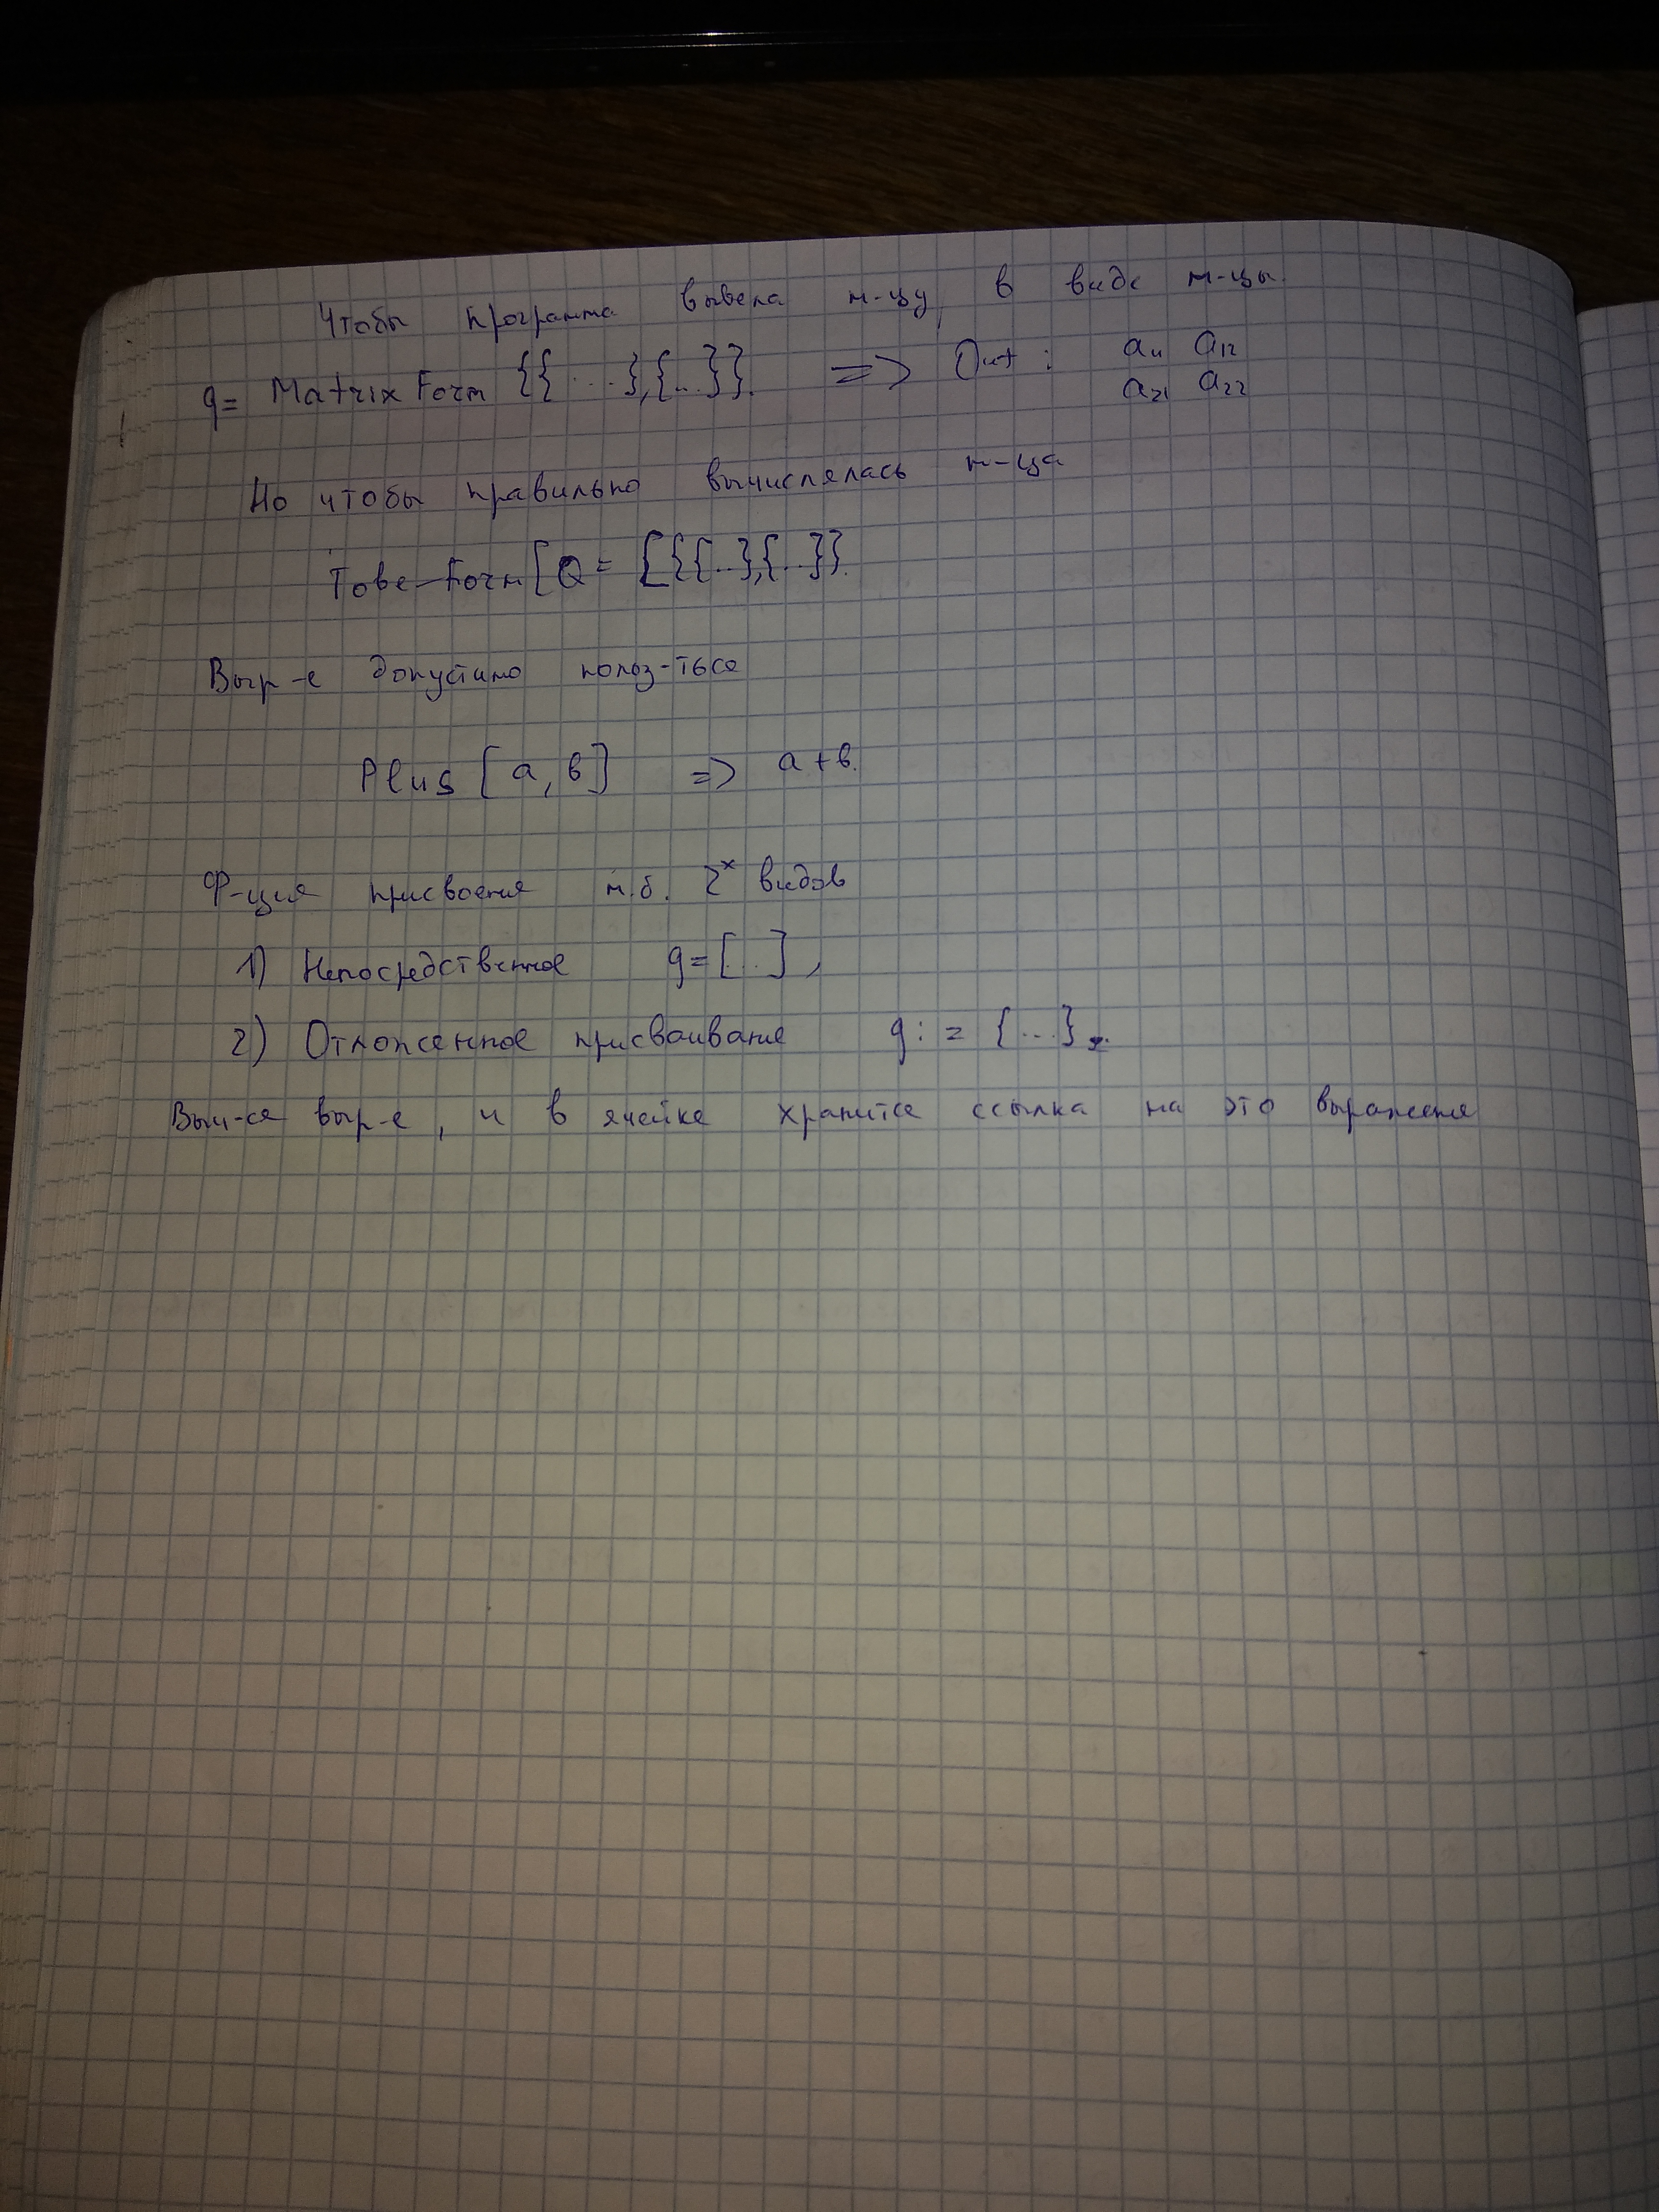 Чтобы программа вывела м-цу в виде м-цы.
q = Matrix Form {{...},{...}}. => Out : a11 a12
a21 a22
Но чтобы правильно вычислялась м-ца
Form [Q = [{{...},{...}}.
Выр-е допустимо польз-ться
Plus [a, b] => a+b.
Ф-ция присвоения м.б. 2х видов
1) Непосредственное q=[...],
2) Отложенное присваивание q := {...}
Выч-ся выр-е, и в ячейке хранится ссылка на это выражение